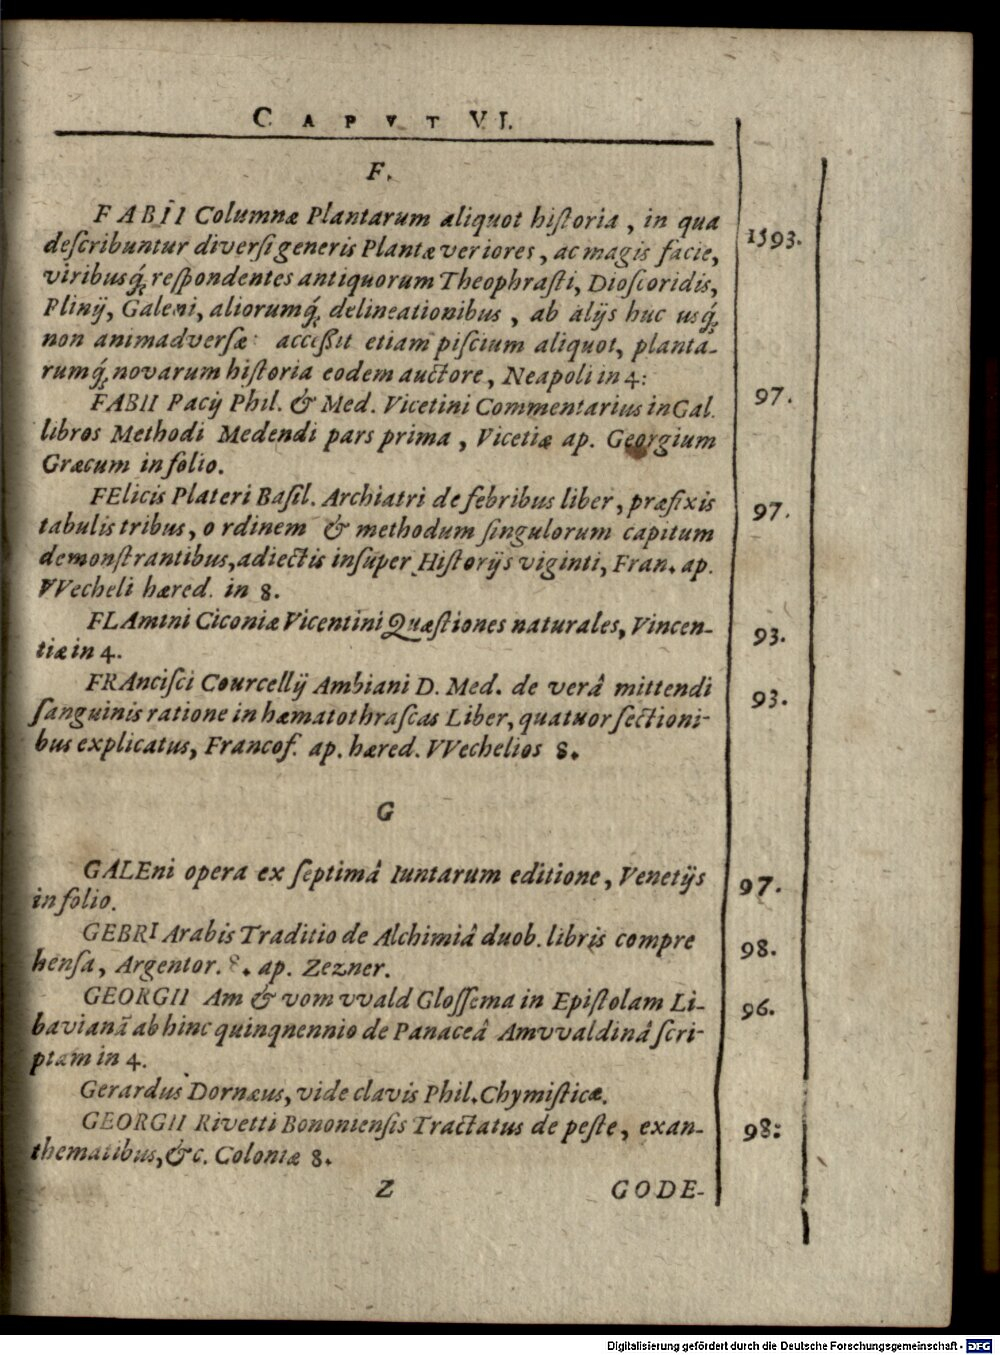 CAPVT VI.
F.
FABII Columnæ Plantarum aliquot hiſtoria, in qua 1593.
deſcribuntur diverſi generis Plantæ veriores, ac magis facie,
viribusq́; reſpondentes antiquorum Theophraſti, Dioſcoridis,
Plinij, Galeni, aliorumq́; delineationibus, ab alijs huc usq́;
non animadverſæ: acceßit etiam piſcium aliquot, planta-
rumq́; novarum hiſtoria eodem auctore, Neapoli in 4:
FABII Pacij Phil. & Med. Vicetini Commentarius in Gal. 97.
libros Methodi Medendi pars prima, Vicetiæ ap. Georgium
Græcum in folio.
FElicis Plateri Baſil. Archiatri de febribus liber, præfixis 97.
tabulis tribus, o rdinem & methodum ſingulorum capitum
demonſtrantibus, adiectis inſuper Hiſtorijs viginti, Fran. ap.
VVecheli hæred. in 8.
FLAmini Ciconiæ Vicentini Quæſtiones naturales, Vincen- 93.
tiæ in 4.
FRAnciſci Courcellij Ambiani D. Med. de verâ mittendi 93.
ſanguinis ratione in hæmatothraſcas Liber, quatuor ſectioni-
bus explicatus, Francof. ap. hæred. VVechelios 8.
G
GALEni opera ex ſeptimâ Iuntarum editione, Venetijs 97.
in folio.
GEBRI Arabis Traditio de Alchimiâ duob. libris compre 98.
henſa, Argentor. 8. ap. Zezner.
GEORGII Am & vom vvald Gloſſema in Epiſtolam Li- 96.
bavianā ab hinc quinqnennio de Panaceâ Amvvaldinâ ſcri-
ptam in 4.
Gerardus Dornæus, vide clavis Phil. Chymiſticæ.
GEORGII Rivetti Bononienſis Tractatus de peſte, exan- 98:
thematibus, &c. Coloniæ 8.
Z GODE-
Digitalisierung gefördert durch die Deutsche Forschungsgemeinschaft - DFG